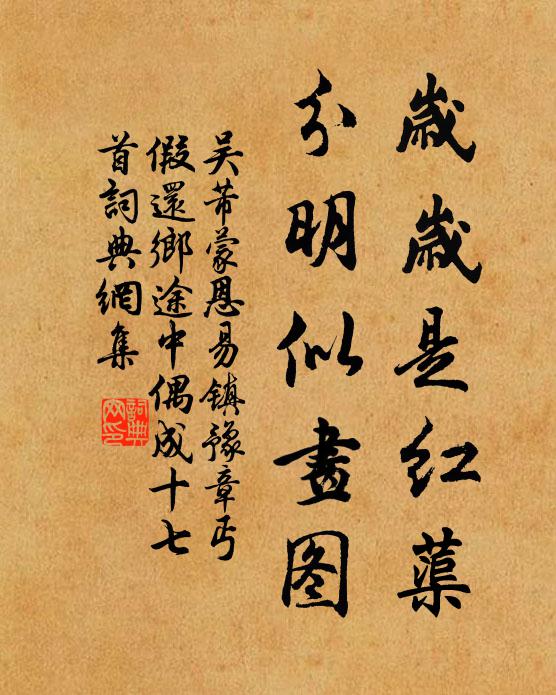 歲歲是红蕖
分明似畫图
吴芾蒙恩易鎮豫章丐
假還鄉途中偶成十七
首詞典網集
詞典
网印